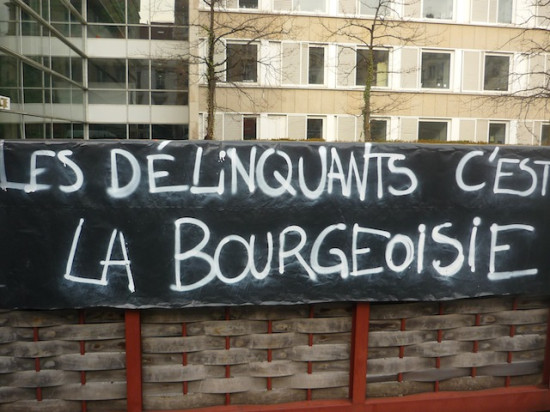 LES DÉLINQUANTS C'EST
LA BOURGEOISIE